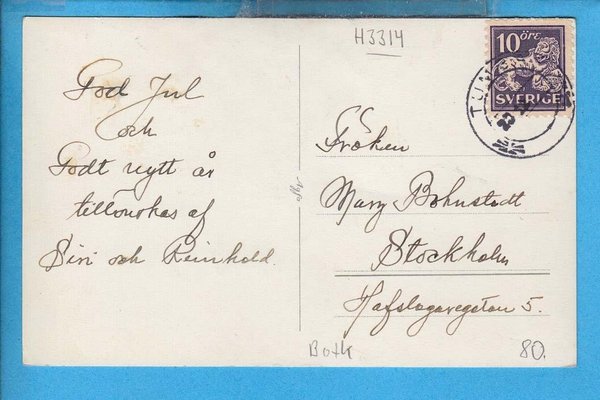 H3314
10 ÖRE
SVERIGE
God Jul
och
Godt nytt år
tillönskas af
Siri och Reinhold.
Fröken
Mary Bohnstedt
Stockholm
Hafslagaregatan 5.
80.